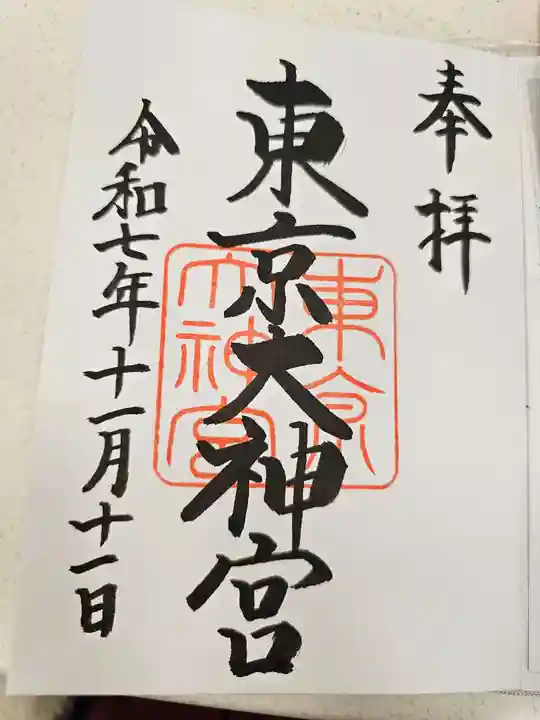 奉拝
東京大神宮
東京大神宮
令和七年十一月十一日